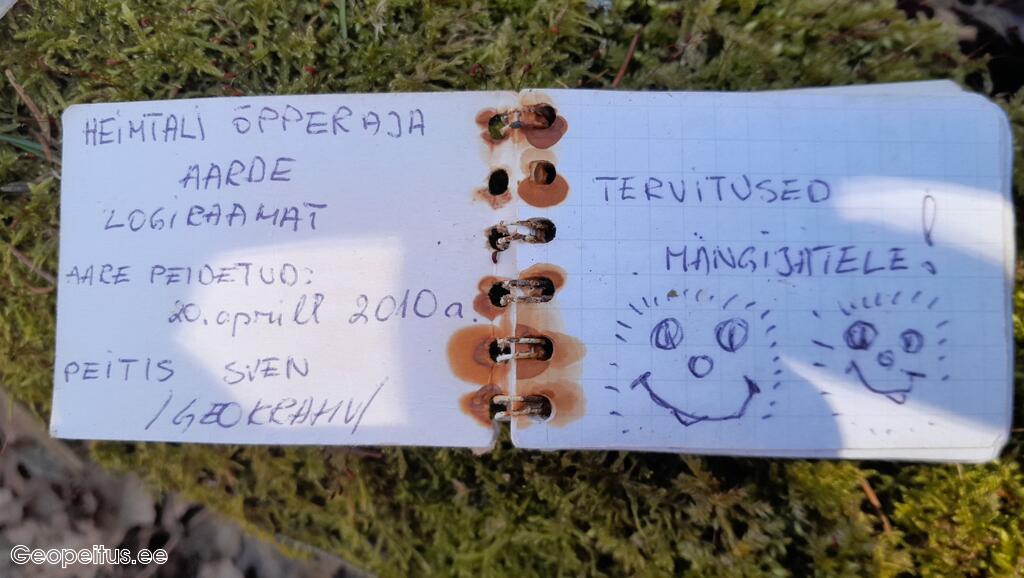 HEIMTALI ÕPPERAJA
AARDE
LOGIRAAMAT
AARE PEIDETUD:
20. aprill 2010a.
PEITIS SVEN
/GEOKRAHV/
TERVITUSED
MÄNGIJATELE!
Geopeitus.ee